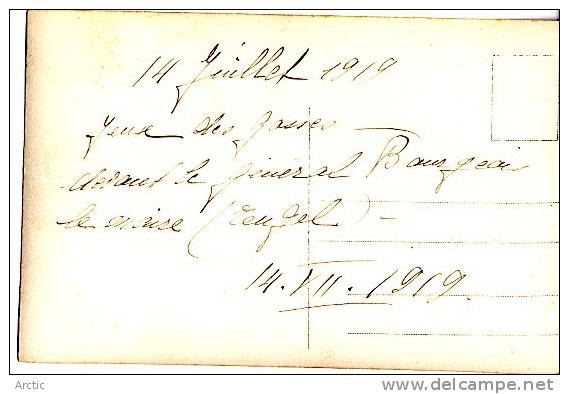 14 Juillet 1919
Jeux des gosses —
devant le général Bourgeois
le maire (Engel) —
14.VII.1919.
Arctic
www.delcampe.net